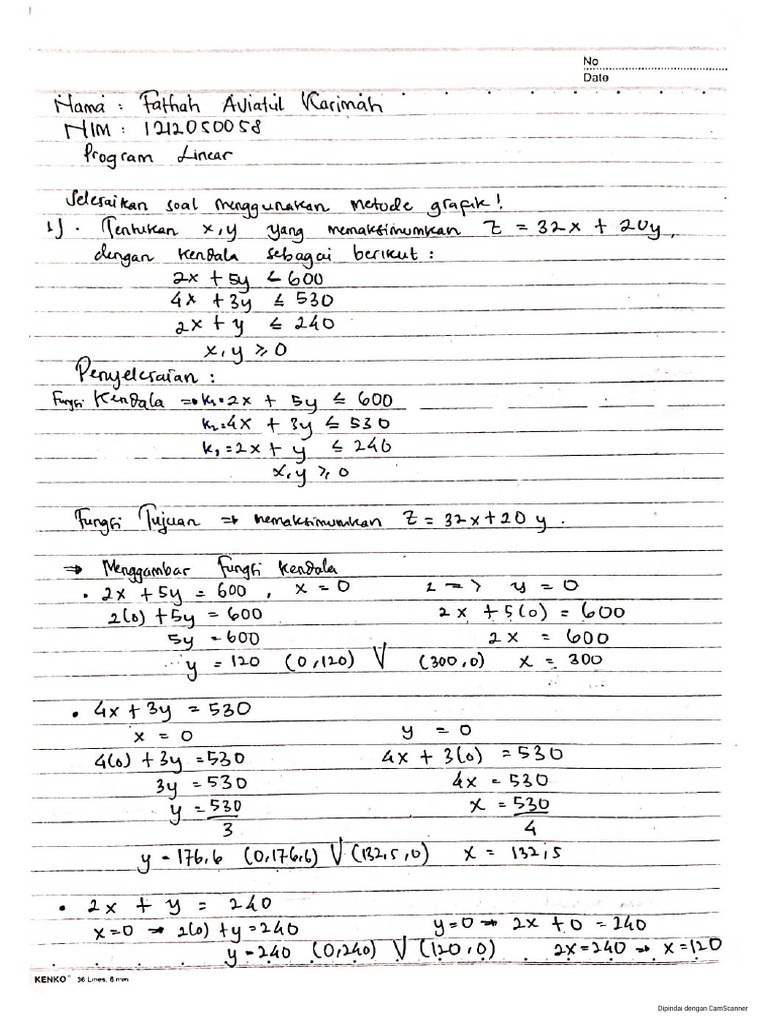 No
Date
Nama : Fathah Aviatul Karimah
NIM : 1212050058
Program Linear
Selesaikan soal menggunakan metode grafik!
1). Tentukan x,y yang memaksimumkan Z = 32x + 20y,
dengan kendala sebagai berikut :
2x + 5y ≤ 600
4x + 3y ≤ 530
2x + y ≤ 240
x, y ≥ 0
Penyelesaian :
Fungsi Kendala => K₁ = 2x + 5y ≤ 600
K₂ = 4x + 3y ≤ 530
K₃ = 2x + y ≤ 240
x, y ≥ 0
Fungsi Tujuan => memaksimumkan Z = 32x + 20 y.
=> Menggambar Fungsi Kendala
• 2x + 5y = 600, x = 0 => y = 0
2(0) + 5y = 600 2x + 5(0) = 600
5y = 600 2x = 600
y = 120 (0,120) V (300,0) x = 300
• 4x + 3y = 530
x = 0 y = 0
4(0) + 3y = 530 4x + 3(0) = 530
3y = 530 4x = 530
y = 530/3 x = 530/4
y = 176,6 (0,176,6) V (132,5,0) x = 132,5
• 2x + y = 240
x=0 → 2(0) + y = 240 y=0 → 2x + 0 = 240
y = 240 (0,240) V (120,0) 2x = 240 → x = 120
KENKO® 36 Lines, 8 mm
Dipindai dengan CamScanner